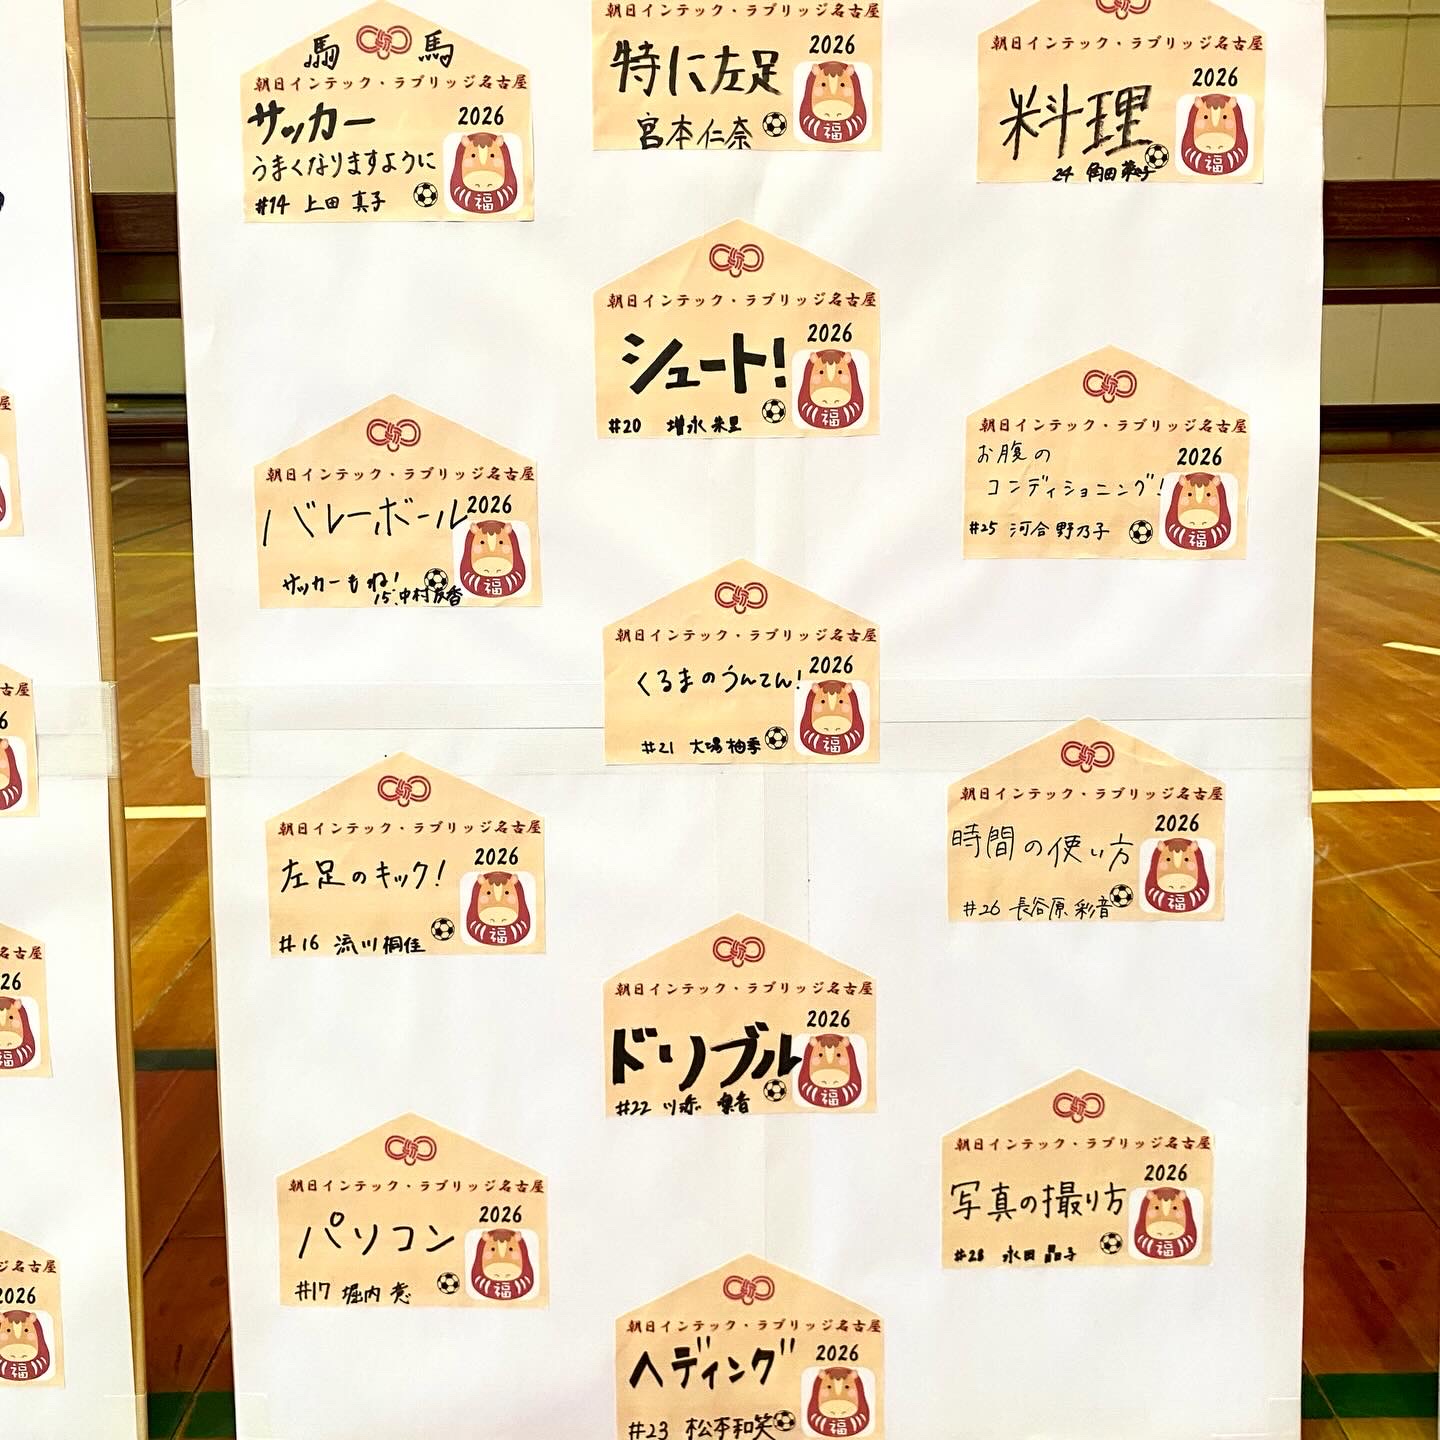 馬 馬
朝日インテック・ラブリッジ名古屋
サッカー
2026
うまくなりますように
#14 上田 真子
福
朝日インテック・ラブリッジ名古屋
バレーボール
2026
サッカーもね!
15.中村友香
福
朝日インテック・ラブリッジ名古屋
2026
左足のキック!
#16 流川桐佳
福
朝日インテック・ラブリッジ名古屋
2026
パソコン
#17 堀内 恵
福
朝日インテック・ラブリッジ名古屋
2026
特に左足
宮本仁奈
福
朝日インテック・ラブリッジ名古屋
2026
シュート!
#20 増永朱里
福
朝日インテック・ラブリッジ名古屋
2026
くるまのうんてん!
#21 大場柚季
福
朝日インテック・ラブリッジ名古屋
2026
ドリブル
#22 川添 梨音
福
朝日インテック・ラブリッジ名古屋
2026
ヘディング
#23 松本和笑
福
朝日インテック・ラブリッジ名古屋
2026
料理
24 角田
福
朝日インテック・ラブリッジ名古屋
お腹の
2026
コンディショニング!
#25 河合野乃子
福
朝日インテック・ラブリッジ名古屋
2026
時間の使い方
#26 長谷原彩音
福
朝日インテック・ラブリッジ名古屋
2026
写真の撮り方
#28 永田晶子
福